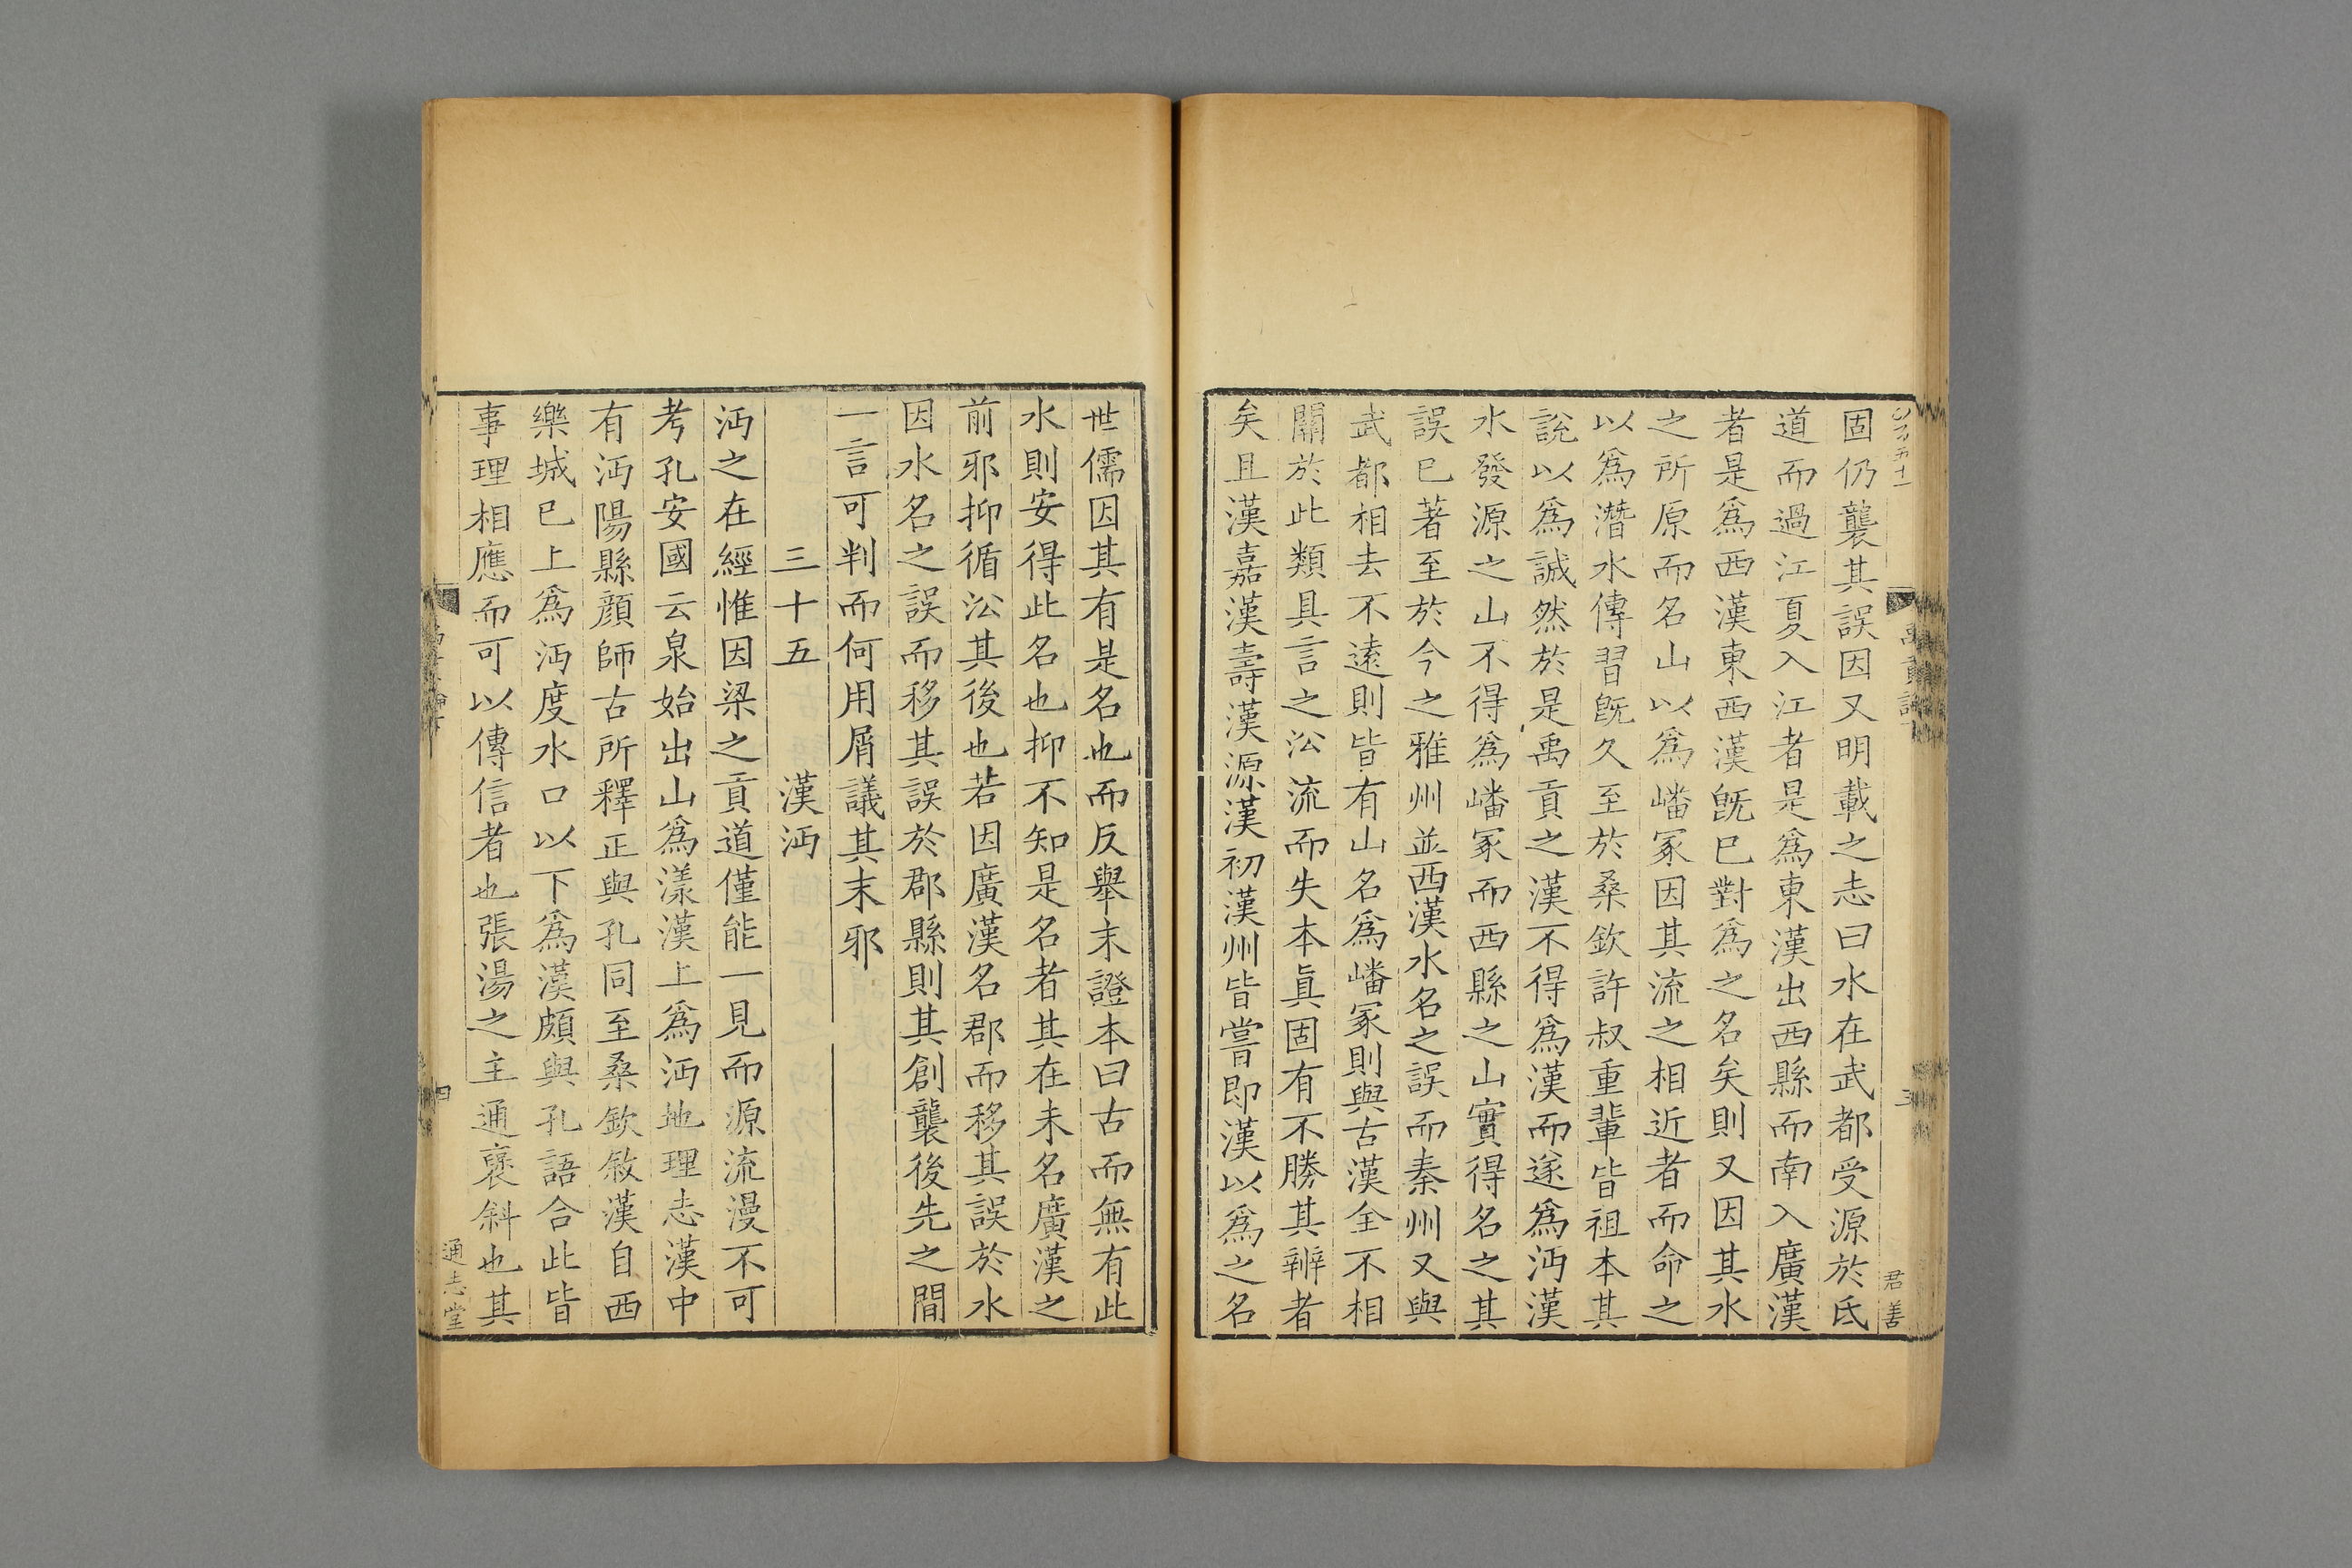 固仍襲其誤因又明載之志曰水在武都受源於氐
道而過江夏入江者是爲東漢出西縣而南入廣漢
者是爲西漢東西漢旣巳對爲之名矣則又因其水
之所原而名山以爲嶓冢因其流之相近者而命之
以爲潛水傳習旣久至於桑欽許叔重輩皆祖本其
說以爲誠然於是禹貢之漢不得爲漢而遂爲沔漢
水發源之山不得爲嶓冢而西縣之山實得名之其
誤巳著至於今之雅州並西漢水名之誤而秦州又與
武都相去不遠則皆有山名爲嶓冢則與古漢全不相
關於此類具言之㳂流而失本眞固有不勝其辨者
矣且漢嘉漢壽漢源漢初漢州皆嘗即漢以爲之名
君善
世儒因其有是名也而反舉末證本曰古而無有此
水則安得此名也抑不知是名者其在未名廣漢之
前邪抑循㳂其後也若因廣漢名郡而移其誤於水
因水名之誤而移其誤於郡縣則其創襲後先之間
一言可判而何用屑議其末邪
三十五 漢沔
沔之在經惟因梁之貢道僅能一見而源流漫不可
考孔安國云泉始出山爲漾漢上爲沔地理志漢中
有沔陽縣顔師古所釋正與孔同至桑欽敘漢自西
樂城巳上爲沔度水口以下爲漢頗與孔語合此皆
事理相應而可以傳信者也張湯之主通襃斜也其
通志堂